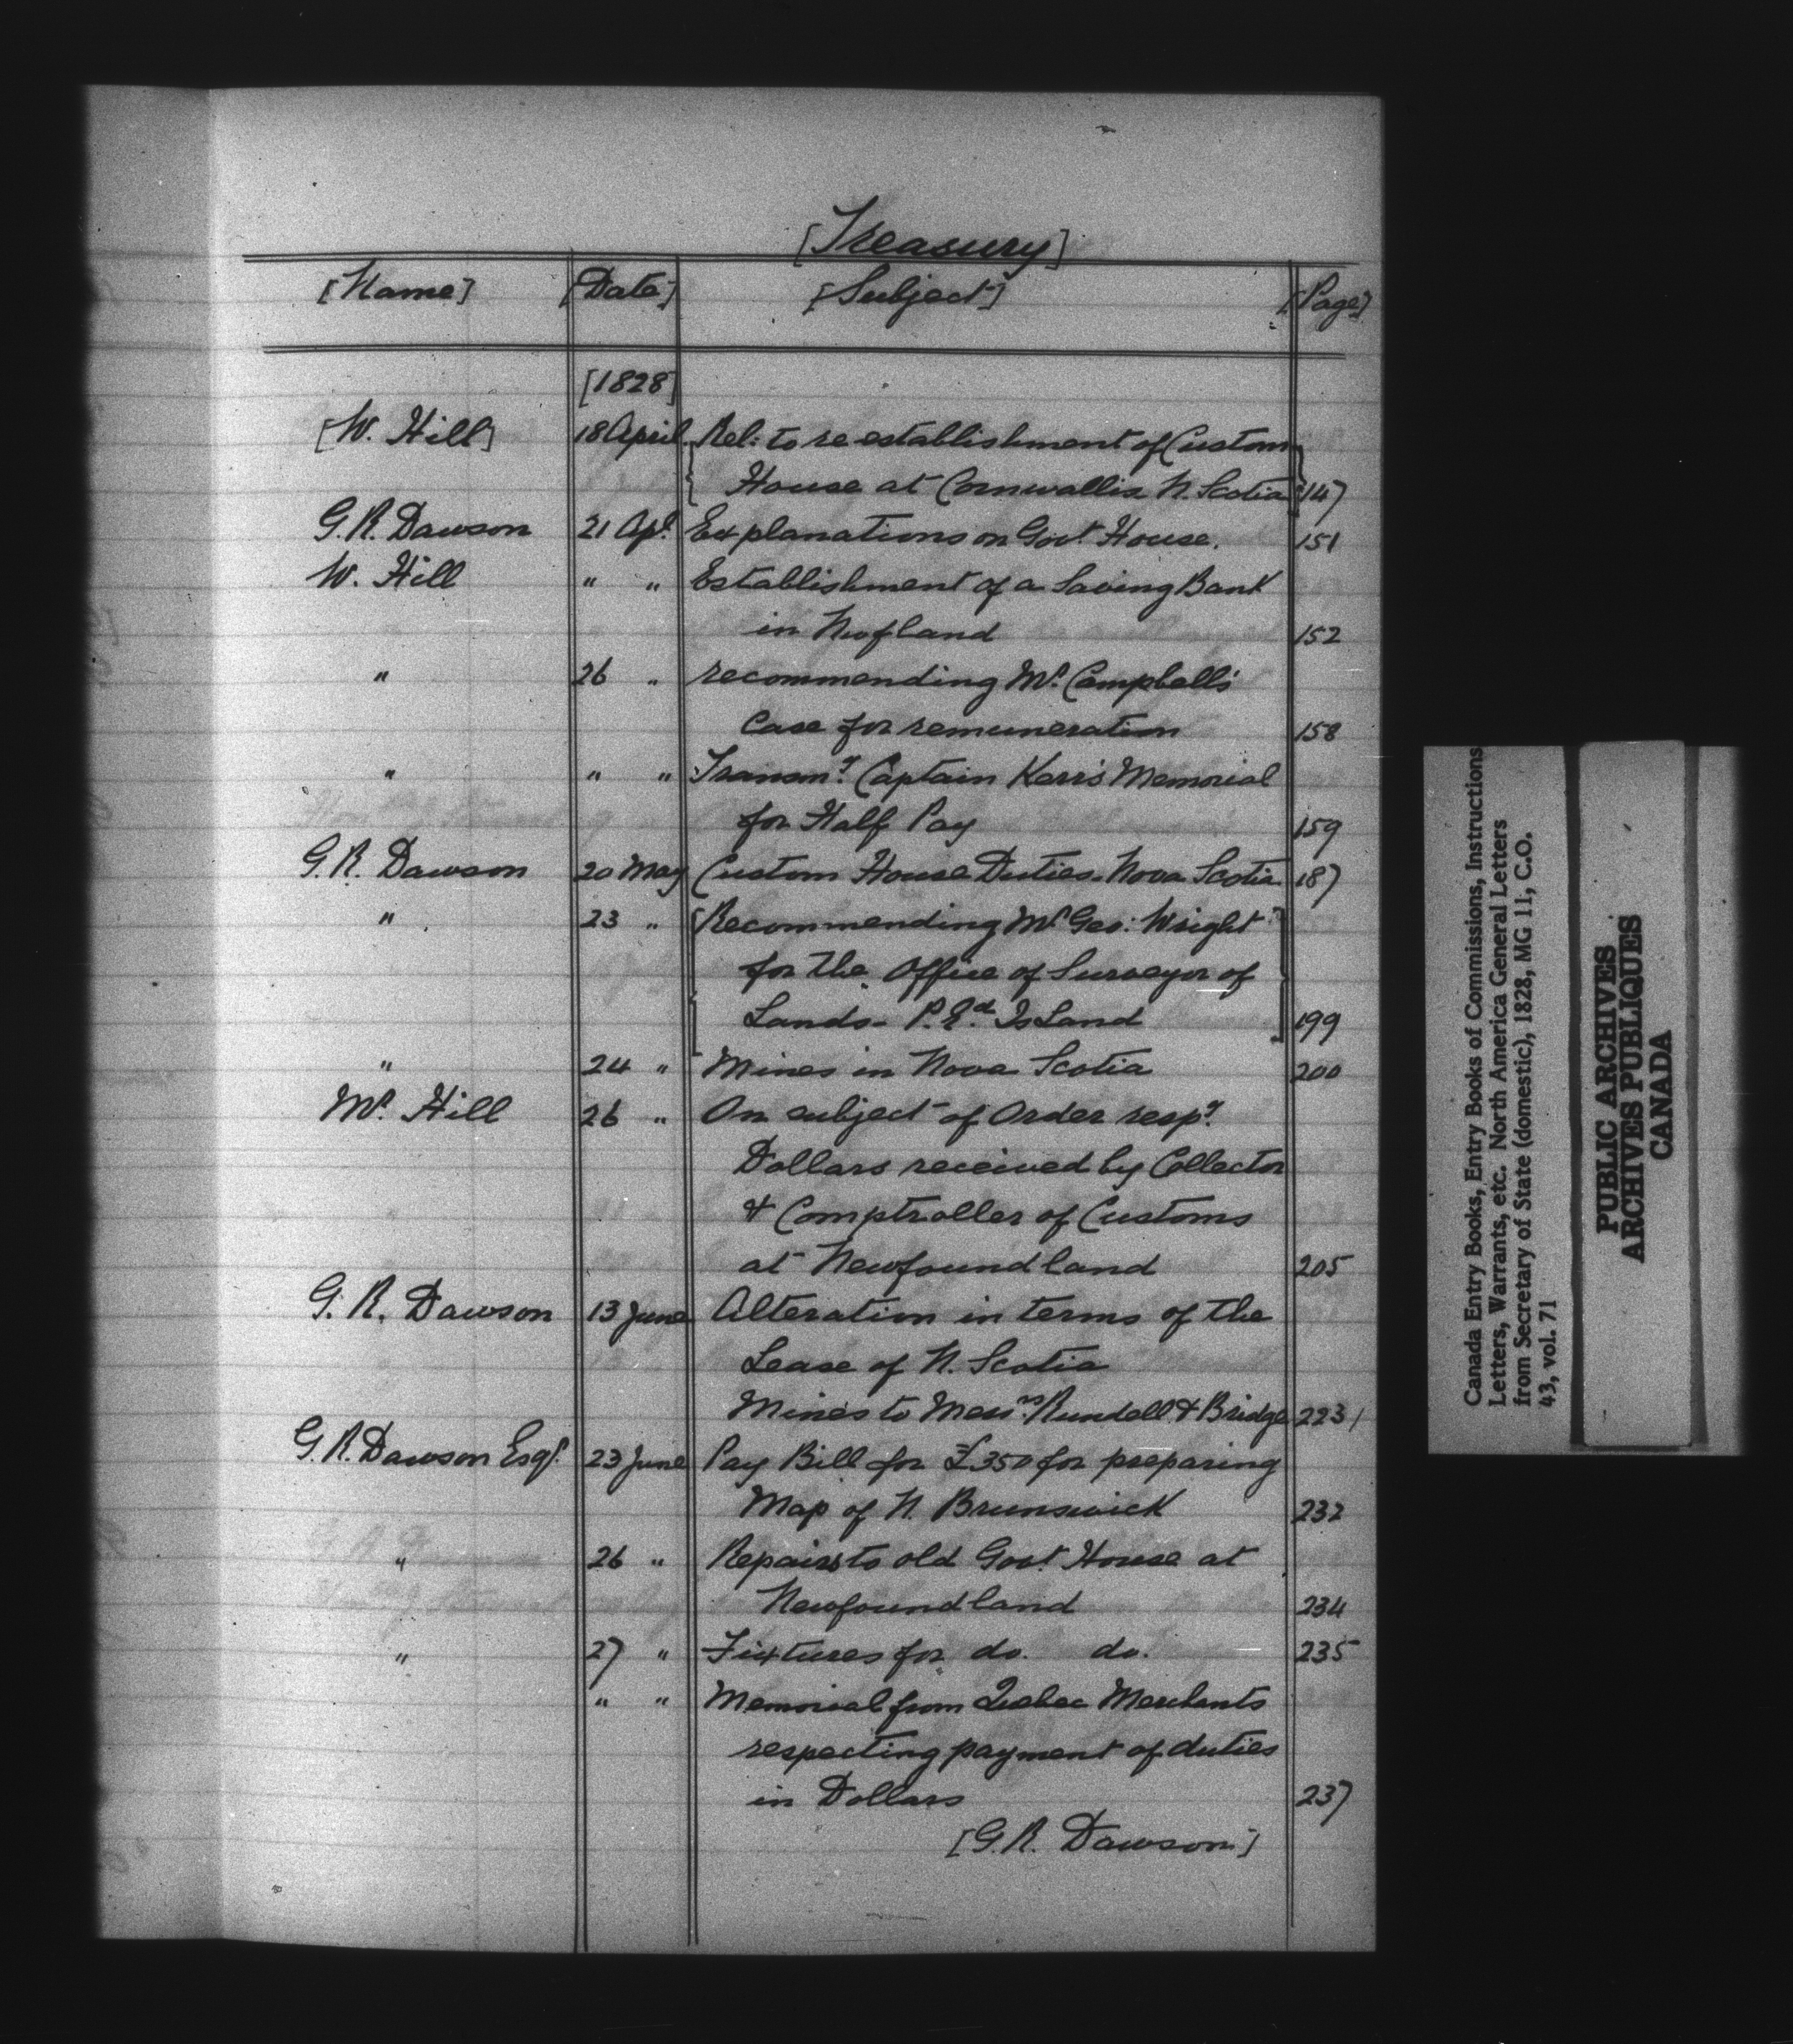 [Treasury]
[Name] [Date] [Subject] [Page]
[1828]
[W. Hill] 18 April. Rel: to re establishment of Custom
House at Cornwallis N. Scotia 147
G. R. Dawson 21 Apl. Explanations on Govt. House. 151
W. Hill " " Establishment of a Saving Bank
in Newfland 152
" 26 " recommending Mr. Campbell's
Case for remuneration 158
" " " Transmg. Captain Kerr's Memorial
for Half Pay 159
G. R. Dawson 20 May Custom House Duties. Nova Scotia 187
" 23 " Recommending Mr Geo: Wright
for the Office of Surveyor of
Lands - P. Ed. Island 199
" 24 " Mines in Nova Scotia 200
Mr. Hill 26 " On subject of Order respg.
Dollars received by Collector
& Comptroller of Customs
at Newfoundland 205
G. R. Dawson 13 June Alteration in terms of the
Lease of N. Scotia
Mines to Messrs. Rundell & Bridge 223
G. R. Dawson Esqr. 23 June Pay Bill for £350 for preparing
Map of N. Brunswick 232
" 26 " Repairs to old Govt. House at
Newfoundland 234
" 27 " Fixtures for do. do. 235
" " Memorial from Quebec Merchants
respecting payment of duties
in Dollars 237
[G. R. Dawson]
Canada Entry Books, Entry Books of Commissions, Instructions
Letters, Warrants, etc. North America General Letters
from Secretary of State (domestic), 1828, MG 11, C.O.
43, vol. 71
PUBLIC ARCHIVES
ARCHIVES PUBLIQUES
CANADA